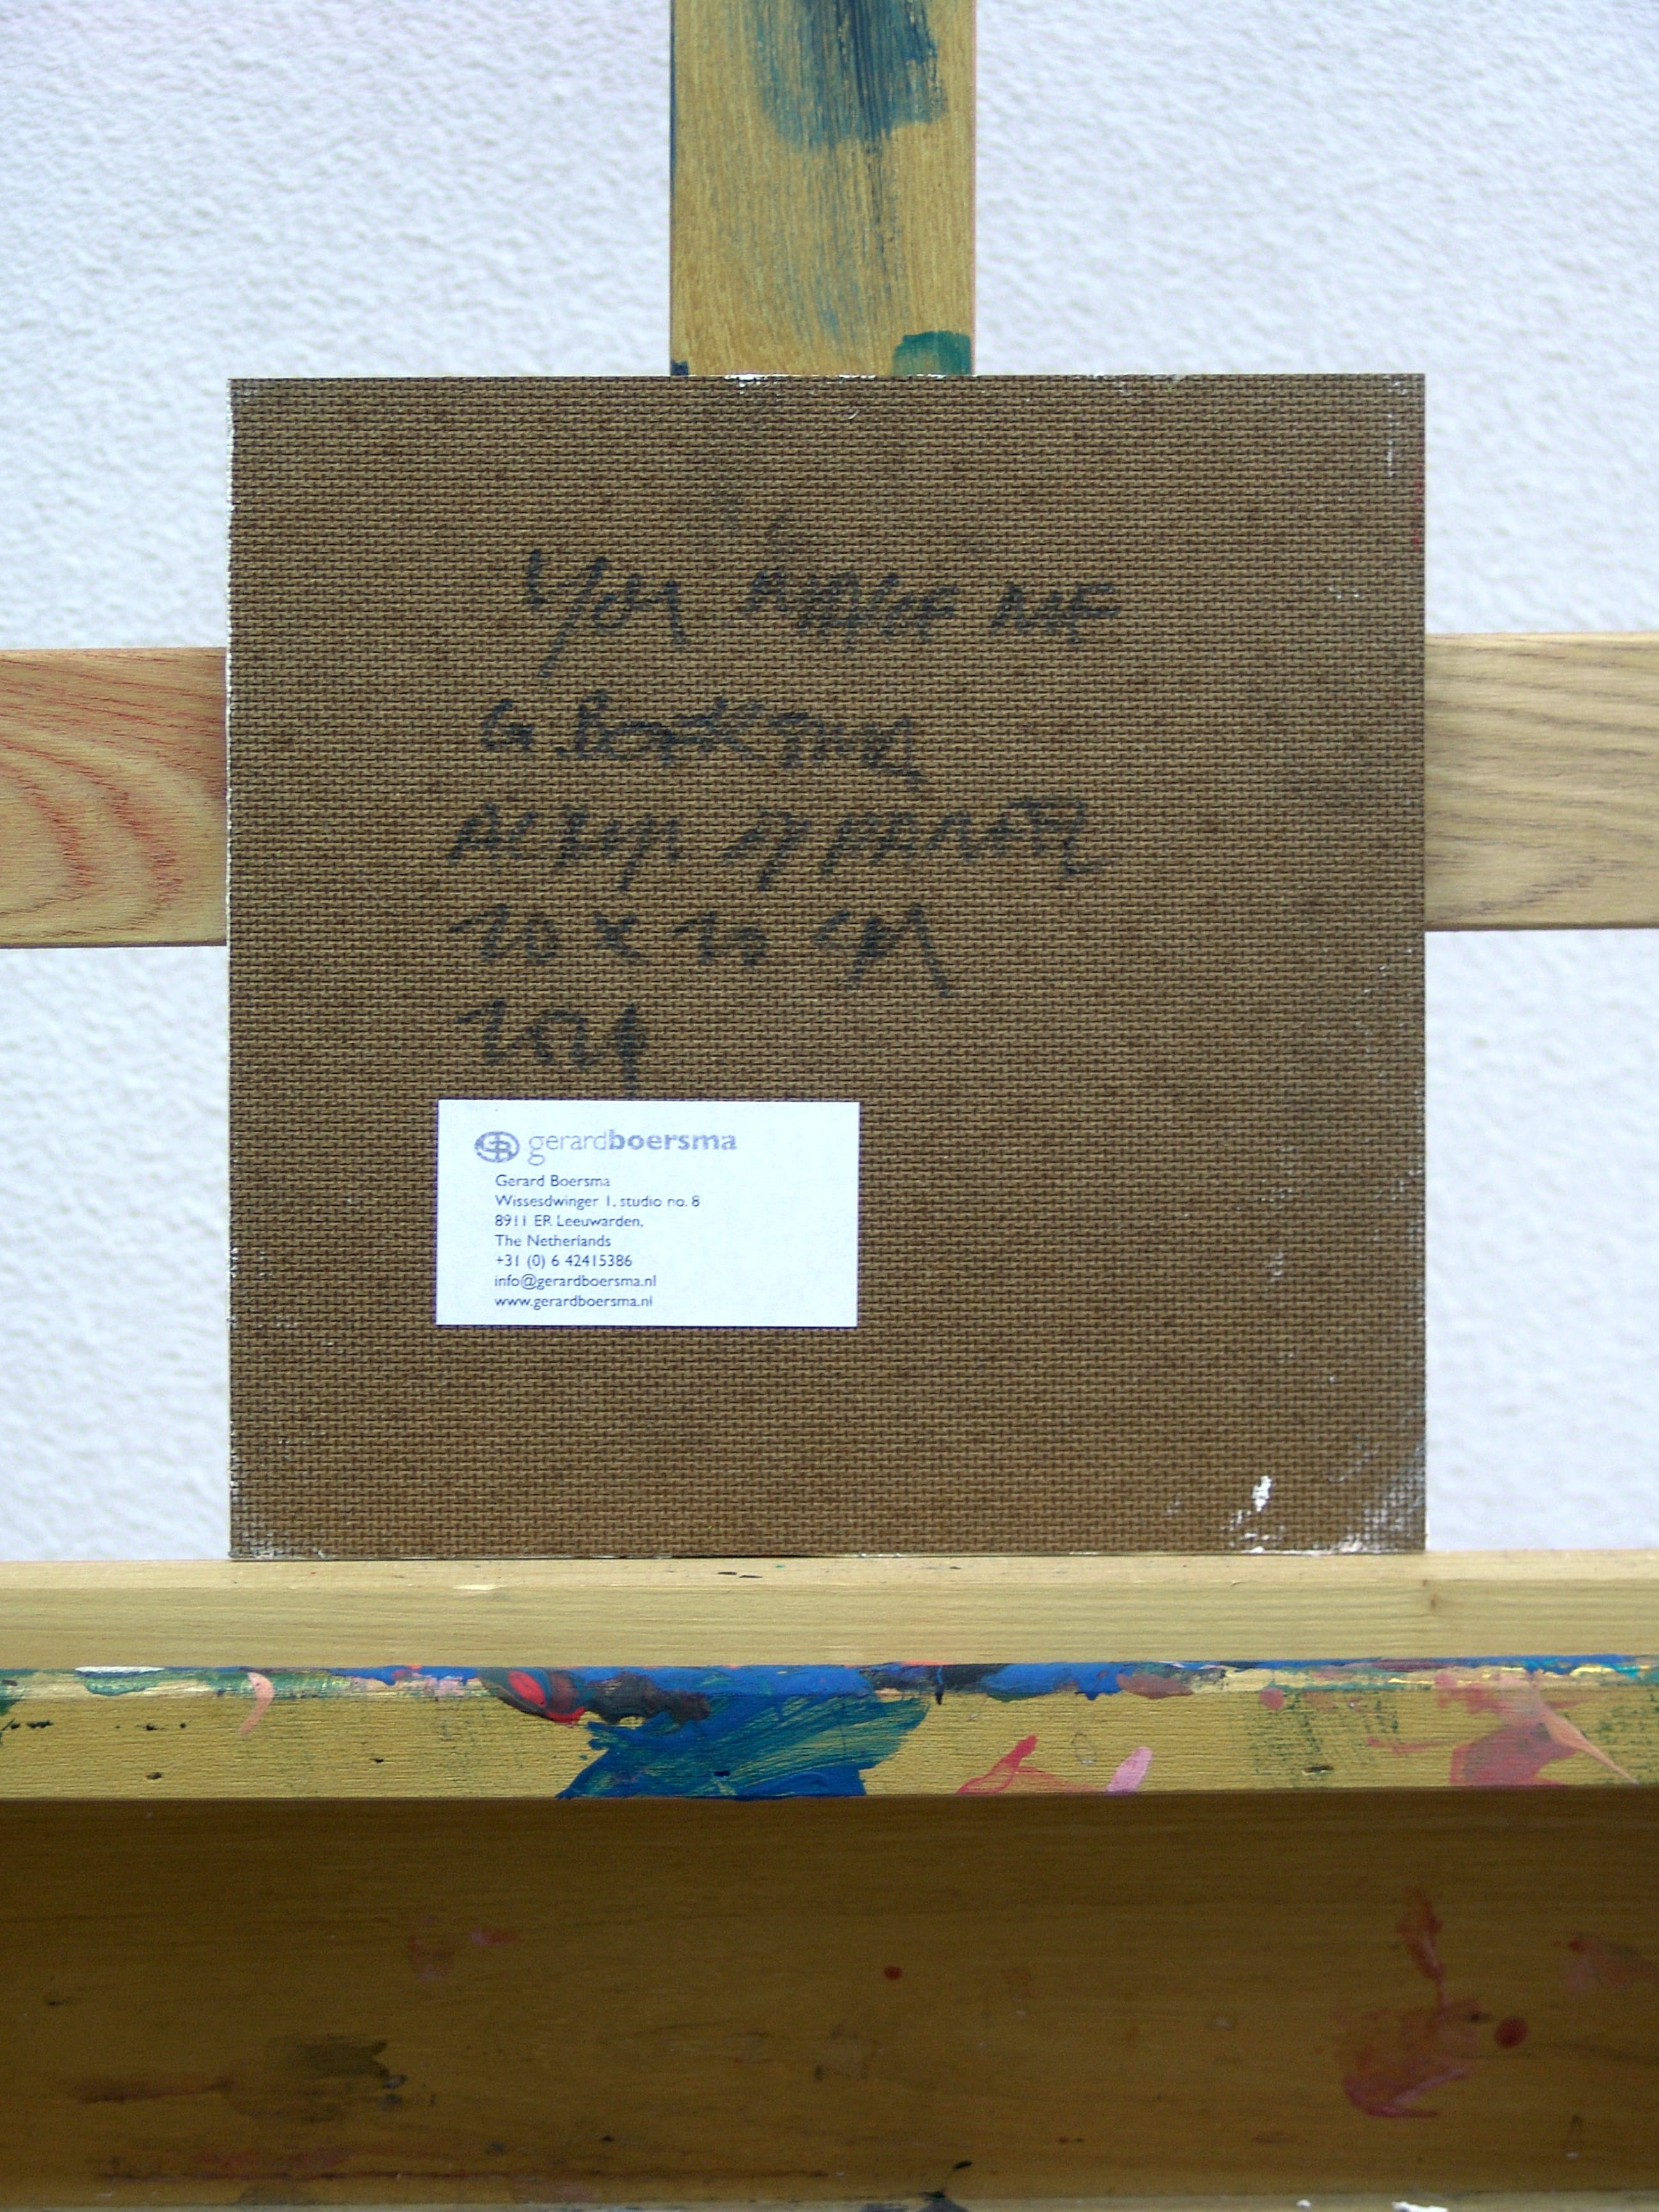 You MAKE ME
G. BOERSMA
ACRYL OP PANEEL
20 x 20 CM
2024
GB gerardboersma
Gerard Boersma
Wissesdwinger 1, studio no. 8
8911 ER Leeuwarden,
The Netherlands
+31 (0) 6 42415386
info@gerardboersma.nl
www.gerardboersma.nl